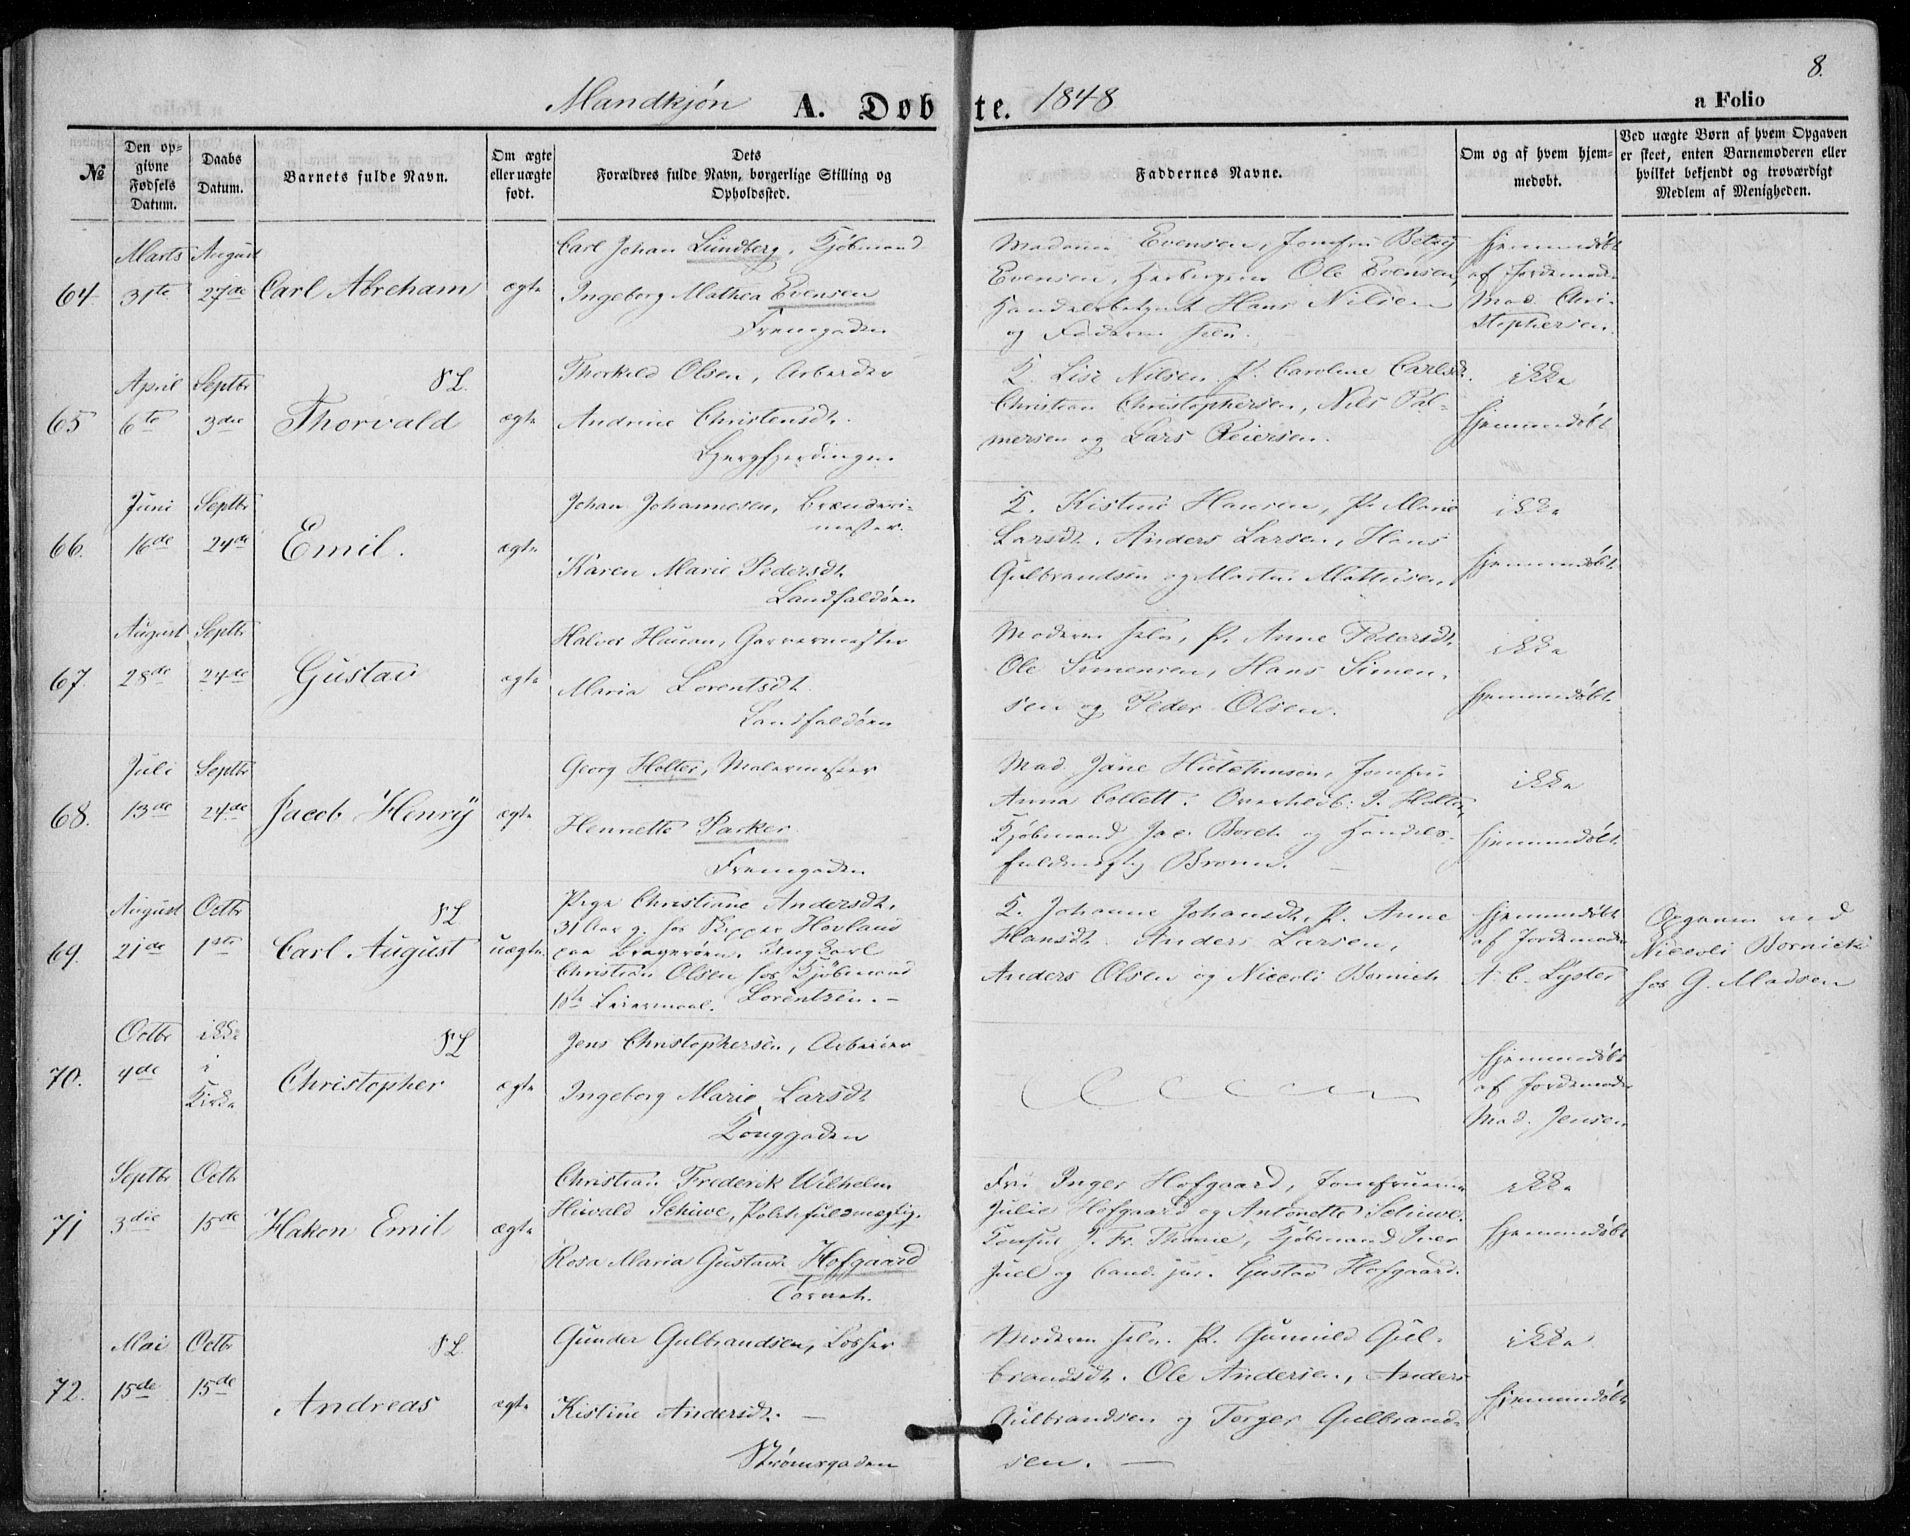 8.
Mandkjøn A. Døbte. 1848 a Folio
№
Den opgivne Fødsels Datum.
Daabs Datum.
Barnets fulde Navn.
Om ægte eller uægte født.
Dets
Forældres fulde Navn, borgerlige Stilling og
Opholdssted.
Faddernes Navne.
Om og af hvem hjemmedøbt.
Ved uægte Børn af hvem Opgaven
er skeet, enten Barnemoderen eller
hvilket bekjendt og troværdigt
Medlem af Menigheden.
64 Marts 31te August 27de Carl Abreham ægte
Carl Johan Lundberg, Kjøbmand
Ingeborg Mathea Evensen
Fremgaden
Madame Evensen, Jomfru Betzy
Evensen, Ole Evensen,
Hans Nilsen
og Faderen selv.
hjemmedøbt
af Jordemoder
Mad. Chri-
stophersen.
65 April 6te Septbr 3die Thorvald ægte
Thorkild Olsen, Arbeider
Andrine Christensdt.
K. Lise Nilsen. P. Caroline Carlsdt.
Christian Christophersen, Nils Pal-
mersen og Lars Reiersen.
ikke
hjemmedøbt
66. Juni 16de Septbr 24de Emil. ægte
Johan Johannesen, Brænderi-
mester.
Karen Marie Pedersdt.
Landfaldøen
K. Kistine Hansen, P. Marie
Larsdt. Anders Larsen, Hans
Gulbrandsen og Martin Mathisen,
ikke
hjemmedøbt
67 August 28de Septbr 24de Gustav ægte
Halvor Hauan, Garvermester
Maria Lorentsdt.
Landfaldøen
Moderen selv, P. Anne Pedersdt.
Ole Simensen, Hans Simen-
sen og Peder Olsen.
ikke
hjemmedøbt
68. Juli 13de Septbr 24de Jacob Henry ægte
Georg Holter, Malermester
Hennette Parker
Fremgaden
Mad. Jane Hutchinson, Jomfru
Anna Collett. J. Holter,
Kjøbmand Jac. Borch og Handels-
fuldmægtig
ikke
hjemmedøbt
69. August 21de Octbr 1ste Carl August uægte
Pige Christiane Andersdt.
31 Aar g. hos Skipper Hovland
paa Bragerøen. Ungkarl
Christian Olsen hos Kjøbmand
1ste Leiermaal. Lorentsen. –
K. Johanne Johansdt, P. Anne
Hansdt. Anders Larsen,
Anders Olsen og Niccoli Bornich
hjemmedøbt
af Jordemoder
A. C. Lyster
Opgaven ved
Niccoli Bornich
hos G. Madsen
70. Octbr 4de ikke i Kirke Christopher ægte
Jens Christophersen, Arbeider
Ingeborg Marie Larsdt
Konggaden
hjemmedøbt
af Jordemoder
Mad. Jensen
71 Septbr 3die Octbr 15de Hakon Emil ægte
Christian Frederik Wilhelm
Schiwe,
Rosa Maria Gustava Hofgaard
Tornet.
Fru Inger Hofgaard, Jomfruerne
Julie Hofgaard og Antonette Schiwe.
Konsul J. Fr. Thorne, Kjøbmand Iver
Juel og cand. jur. Gustav Hofgaard.
ikke
hjemmedøbt
72. Mai 15de Octbr 15de Andreas ægte
Gunder Gulbrandsen, Losser
Kistine Andersdt. –
Strømsgaden
Moderen selv. P. Gunnild Gul-
brandsdt. Ole Andersen, Anders
Gulbrandsen og Torger Gulbrand-
sen. –
ikke
hjemmedøbt